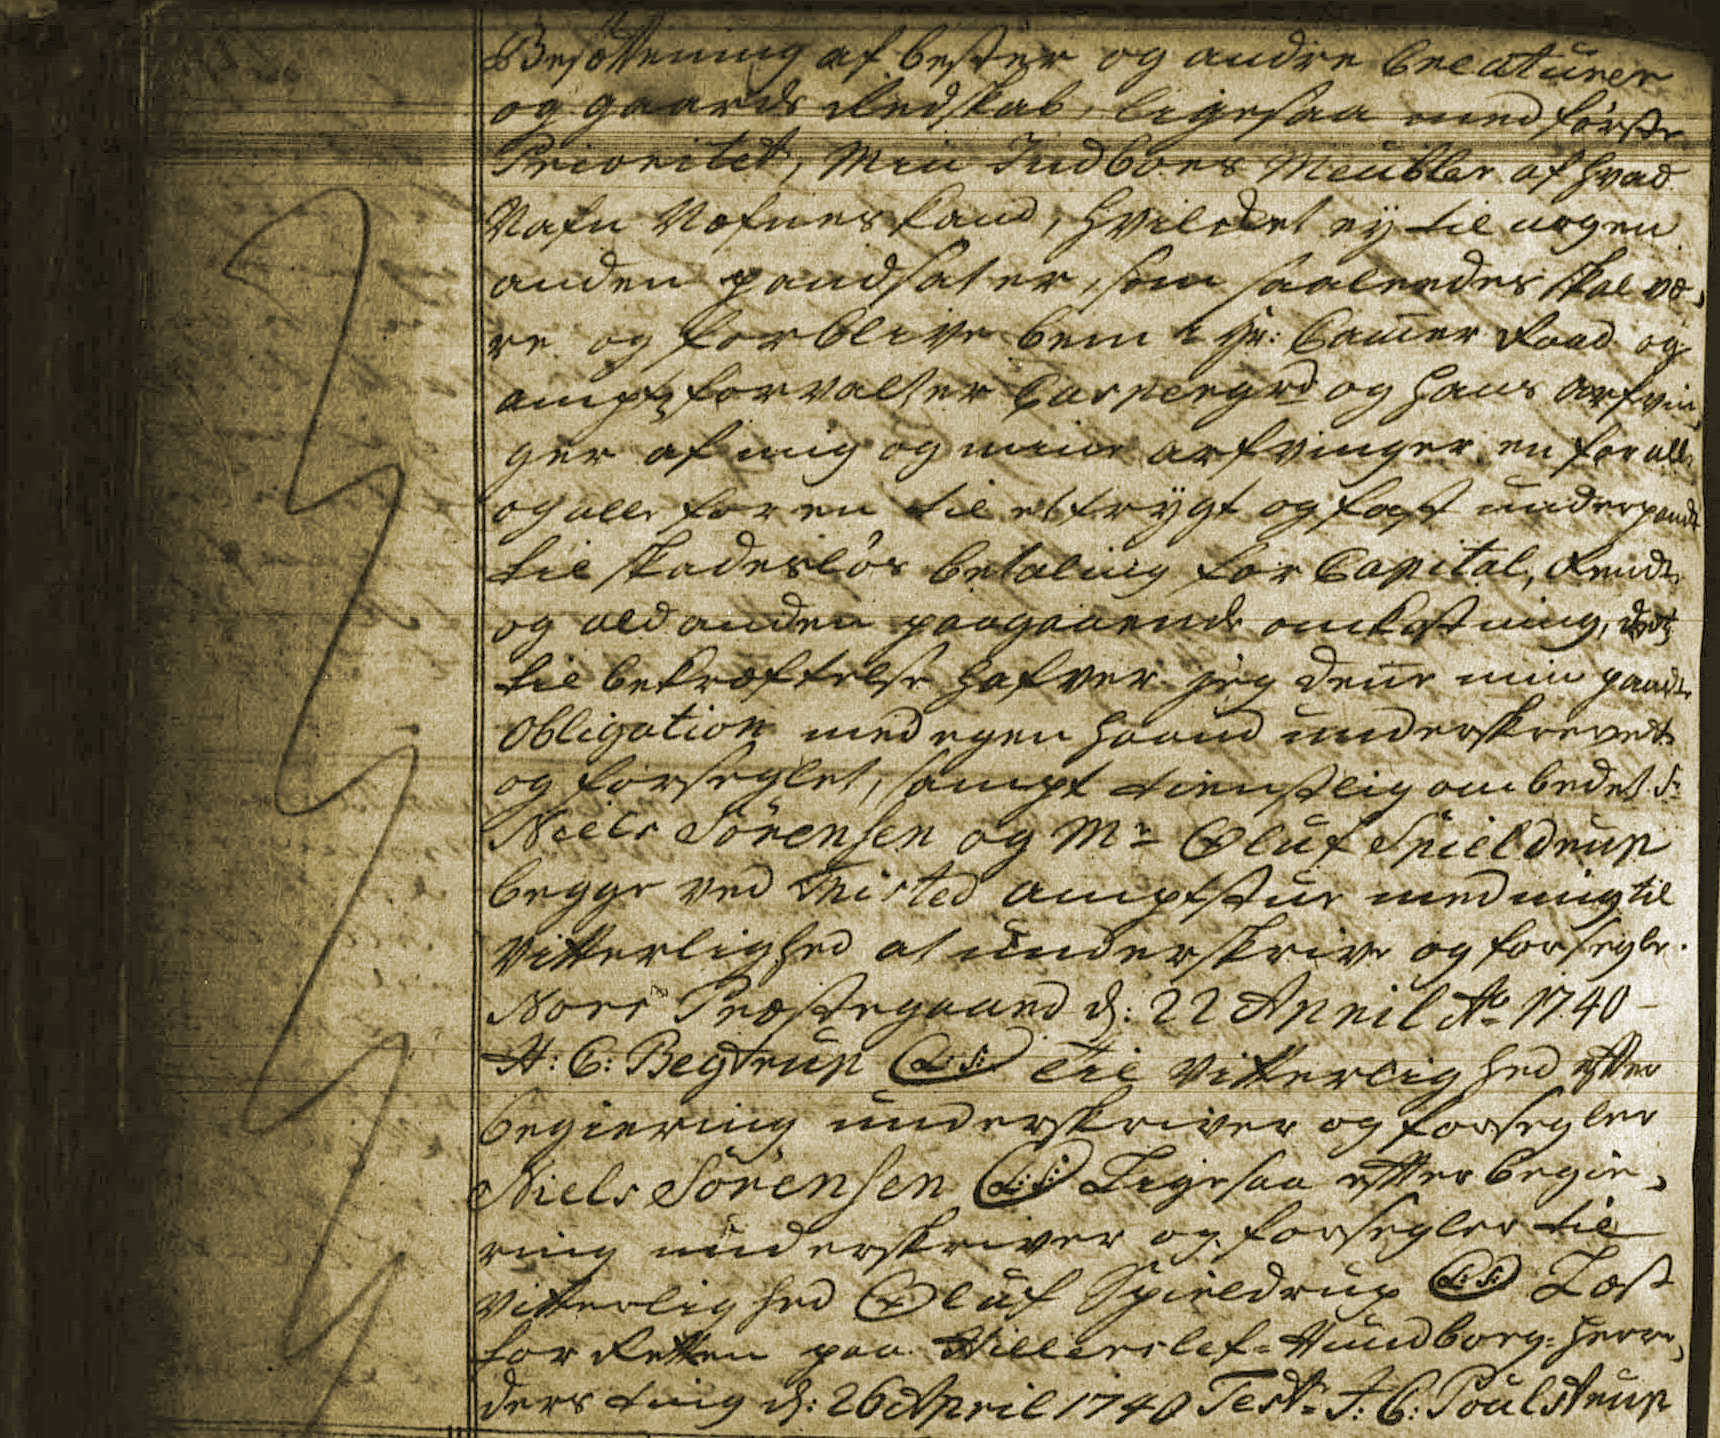 Besættening af bester og andre Creaturer
og gaards Redskab, ligesaa med første
Prioritet, Min Indboes Meubler af hvad
Nafn Nefnes kand, hvilcket ey til nogen
anden pandsat er, som saaleedes skal væ,
re og forblive bem.te Hr: Cammer Raad og
ampts forvalter og hans arfvin,
ger af mig og mine arfvinger, en for alle
og alle for en til et frygt og fast underpandt
til skadesløs betaling for Capital, Rendte
og ald anden paagaaende omkostning, dets
til bekræftelse hafver jeg denne min pandte
Obligation med egen haand underskrevet
og forseglet, sampt tienstlig ombedet Sr.
Niels Sørensen og Mr. Oluf Spieldrup
begge ved Tisted amptstue med mig til
Vitterlighed at underskrive og forsegle.
Nors Præstegaard d: 22 April Ao 1740 -
H: C: Begtrup (L:S:) Til Vitterlighed efter
begiering underskriver og forsegler
Niels Sørensen (L:S:) Ligesaa efter begie,
ring underskriver og forsegler til
vitterlighed Oluf Spieldrup (L:S:) Læst
for Retten paa Hillerslef-Hundborg-Herre,
ders ting d: 26 April 1740 Test: J: C: Poulstrup